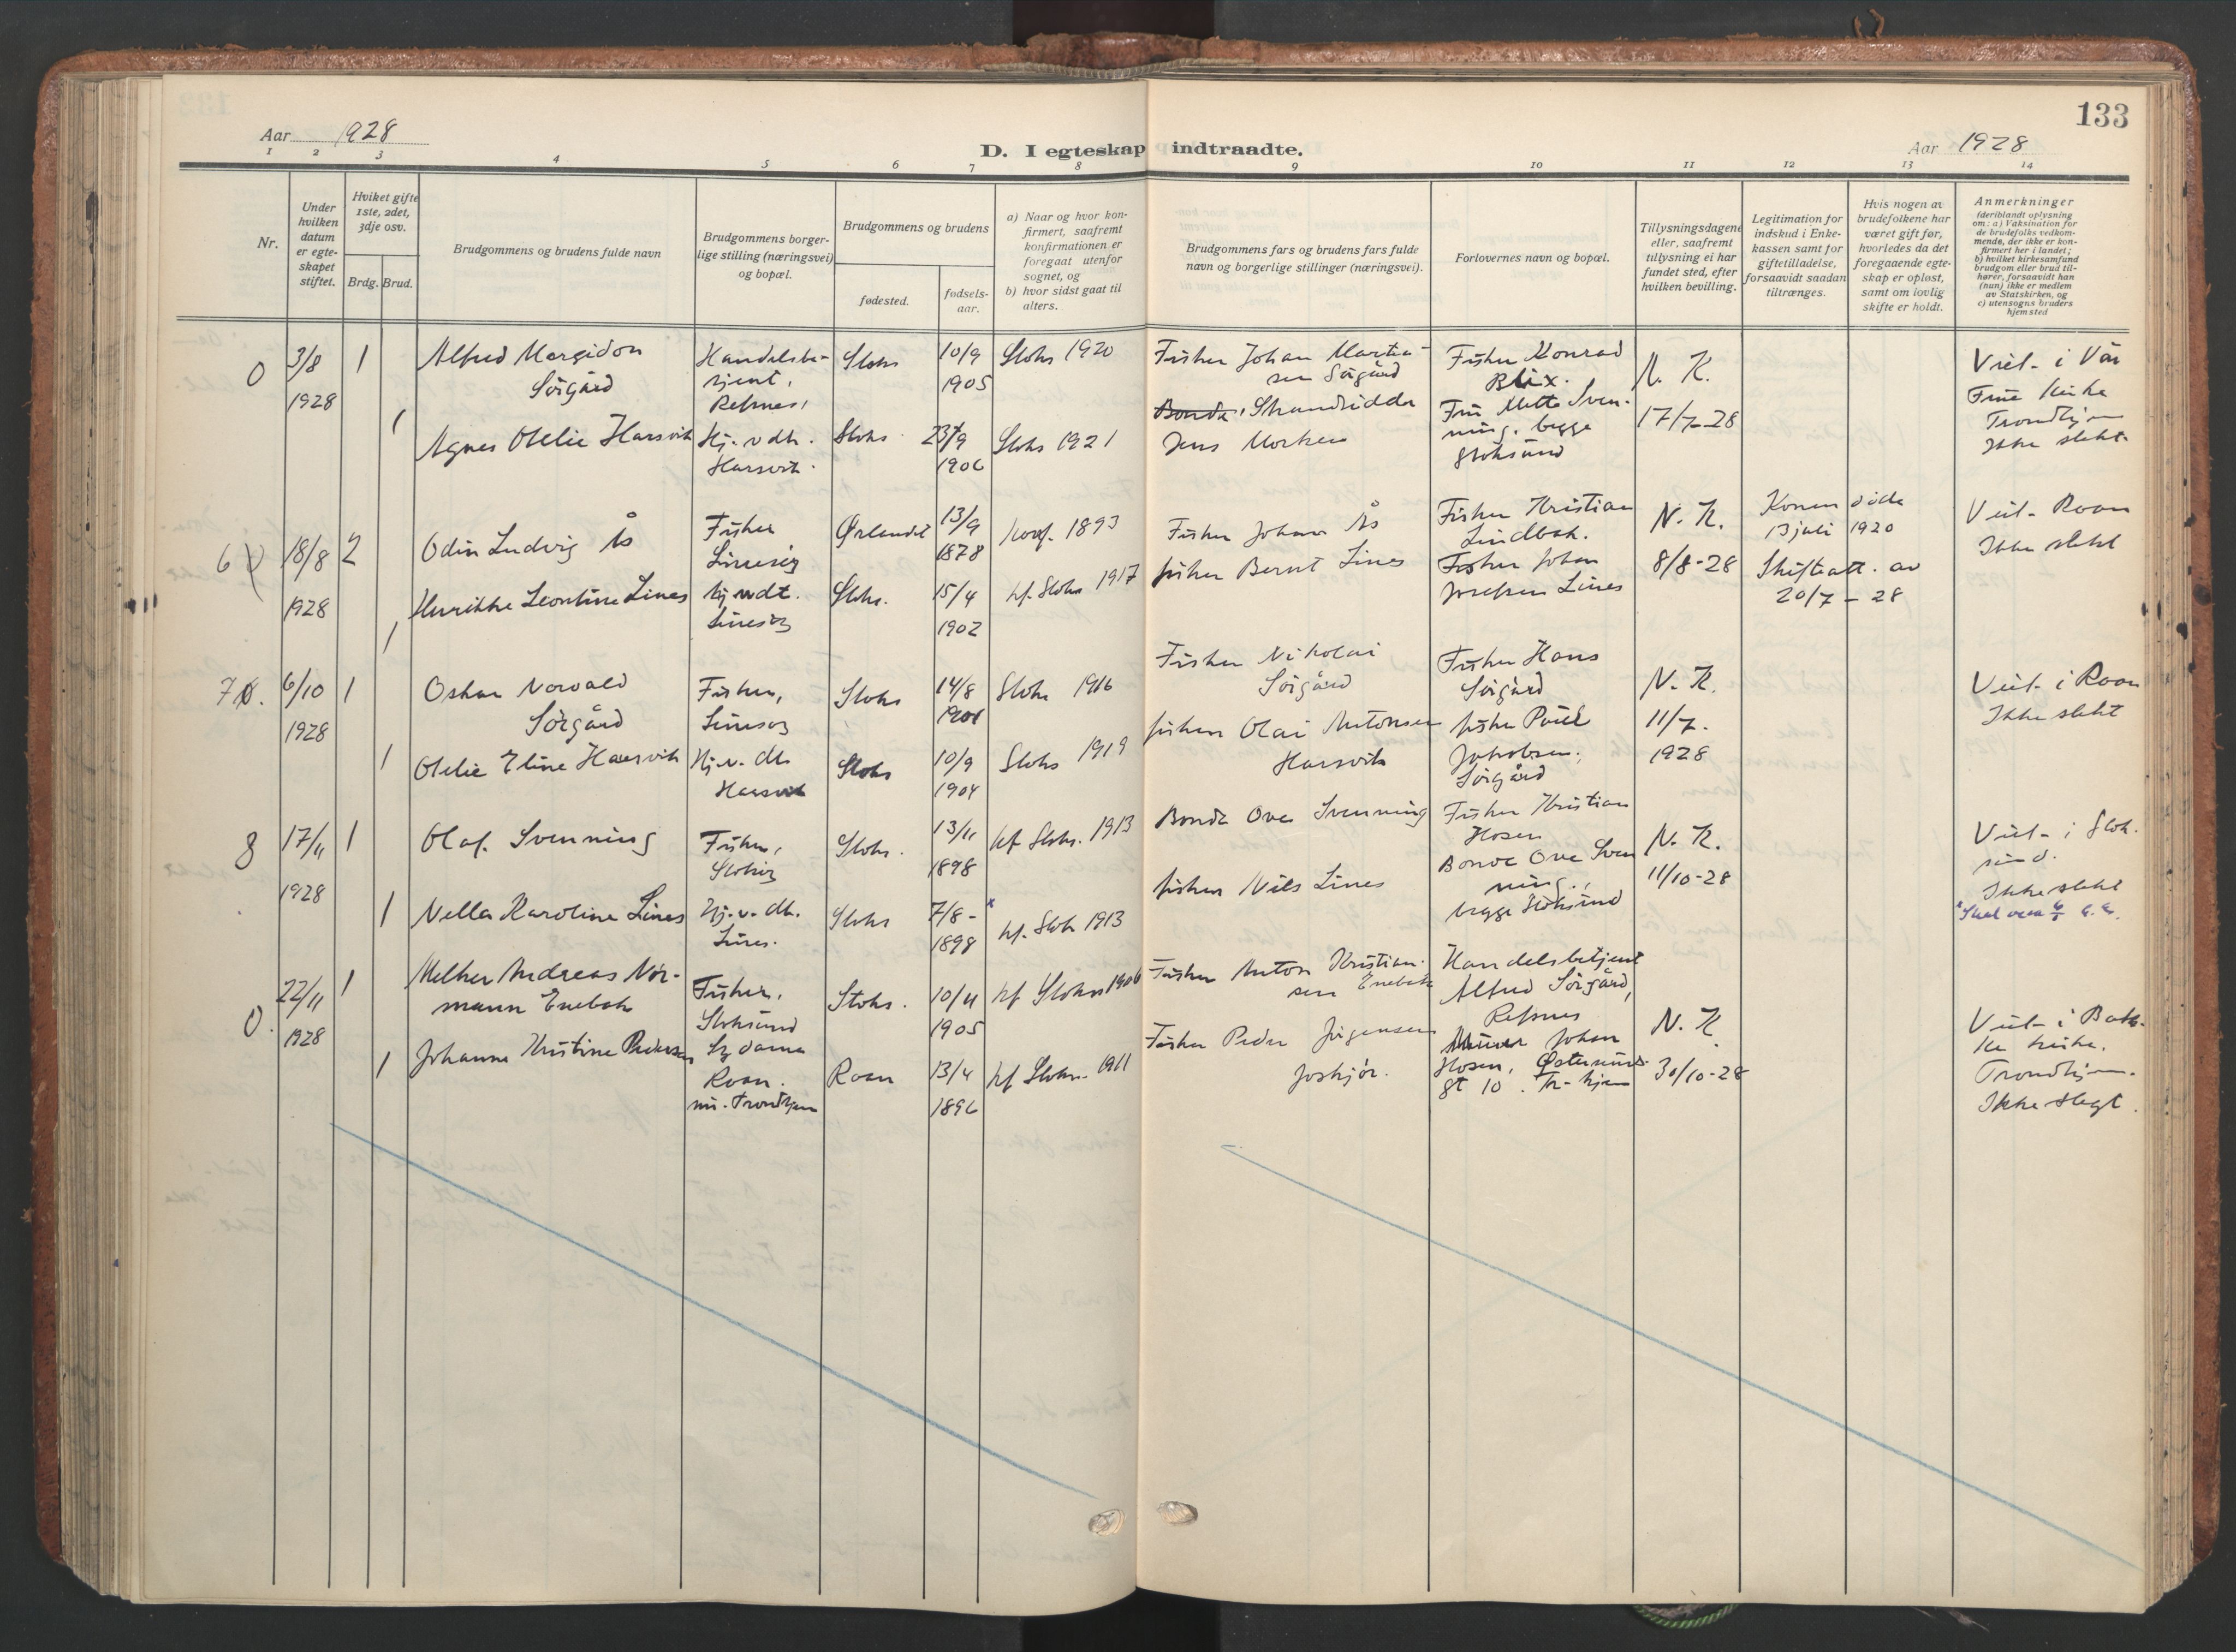 133
Aar 1928
D. I egteskap indtraadte.
Aar 1928
1 2 3 4 5 6 7 8 9 10 11 12 13 14
Nr.
Under
hvilken
datum
er egte-
skapet
stiftet.
Hviket gifte
1ste, 2det,
3dje osv.
Brdg. Brud.
Brudgommens og brudens fulde navn
Brudgommens borger-
lige stilling (næringsvei)
og bopæl.
Brudgommens og brudens
fødested.
fødsels-
aar.
a) Naar og hvor kon-
firmert, saafremt
konfirmationen er
foregaat utenfor
sognet, og
b) hvor sidst gaat til
alters.
Brudgommens fars og brudens fars fulde
navn og borgerlige stillinger (næringsvei).
Forlovernes navn og bopæl.
Tillysningsdagene
eller, saafremt
tillysning ei har
fundet sted, efter
hvilken bevilling.
Legitimation for
indskud i Enke-
kassen samt for
giftetilladelse,
forsaavidt saadan
tiltrænges.
Hvis nogen av
brudefolkene har
været gift før,
hvorledes da det
foregaaende egte-
skap er opløst,
samt om lovlig
skifte er holdt.
Anmerkninger
(deriblandt oplysning
om: a) Vaksination for
de brudefolks vedkom-
mende, der ikke er kon-
firmert her i landet;
b) hvilket kirkesamfund
brudgom eller brud til-
hører, forsaavidt han
(hun) ikke er medlem
av Statskirken, og
c) utensogns bruders
hjemsted
0
3/8
1928
1
Alfred Margidon
Sörgård
Handelsbe-
tjent,
Refsnes,
Stoks
10/9
1905
Stoks 1920
Fisker Johan Martin-
sen Sörgård
Fisker Konrad
Blix.
N. K.
Viet i Vår
Frue kirke
Trondhjem
Ikke slekt
1
Agnes Otelie Harsvik
Hj. v dtr.
Harsvik.
Stoks
23/9
1906
Stoks 1921
Bonde, Strandsidder
Jens Morken
Fru Mette Sven-
ning, begge
Stoksund
17/7-28
6
18/8
1928
2
Odin Ludvig Ås
Fisker
Linesöy
Ørlandet
13/9
1878
konf. 1893
Fisker Johan Ås
Fisker Kristian
Lindbak.
N. K.
Konen döde
13 juli 1920
Viet Roan
Ikke slekt
1
Henrikke Leontine Lines
Hj. v dt.
Linesöy
Stoks.
15/4
1902
kf. Stoks 1917
fisker Bernt Lines
Fisker Johan
Josefsen Lines
8/8-28
Skifteatt. av
20/7 - 28
7
6/10
1928
1
Oskar Norvald
Sörgård
Fisker,
Linesöy
Stoks
14/8
1901
Stoks 1916
Fisker Nikolai
Sörgård
Fisker Hans
Sörgård
N. K.
Viet i Roan
Ikke slekt
1
Otelie Eline Harsvik
Hj. v. dtr
Harsvik
Stoks
10/9
1904
Stoks 1919
fisker Olai Antonsen
Harsvik
fisker Paul
Jakobsen,
Sörgård
11/7.
1928
8
17/11
1928
1
Olaf Svenning
Fisker,
Stoköy
Stoks.
13/11
1898
kf Stoks. 1913
Bonde Ove Svenning
Fisker Kristian
Hosen
N. K.
Viet i Stok-
sund.
Ikke slekt
1
Nella Karoline Lines
Hj. v. dtr.
Lines.
Stoks
7/8-
1898
kf. Stok 1913
fisker Nils Lines
Bonde Ove Sven
ning,
begge Stoksund
11/10-28
0.
22/11
1928
1
Melker Andreas Nor-
mann Enebak
Fisker,
Stoksund
Stoks.
10/11
1905
kf Stoks 1906
Fisker Anton Kristian-
sen Enebak
Handelsbetjent
Alfred Sörgård,
Refsnes
N. K.
Viet i Bak-
ke kirke.
Trondhjem.
Ikke slegt.
1
Johanne Kristine Pedersen
Roan.
nu. Trondhjem
Roan
13/4
1896
kf Stoks. 1911
Fisker Peder Jörgensen
Joskjör.
Johan
Hosen, Østersunds-
gt 10. Tr-hjem
30/10-28